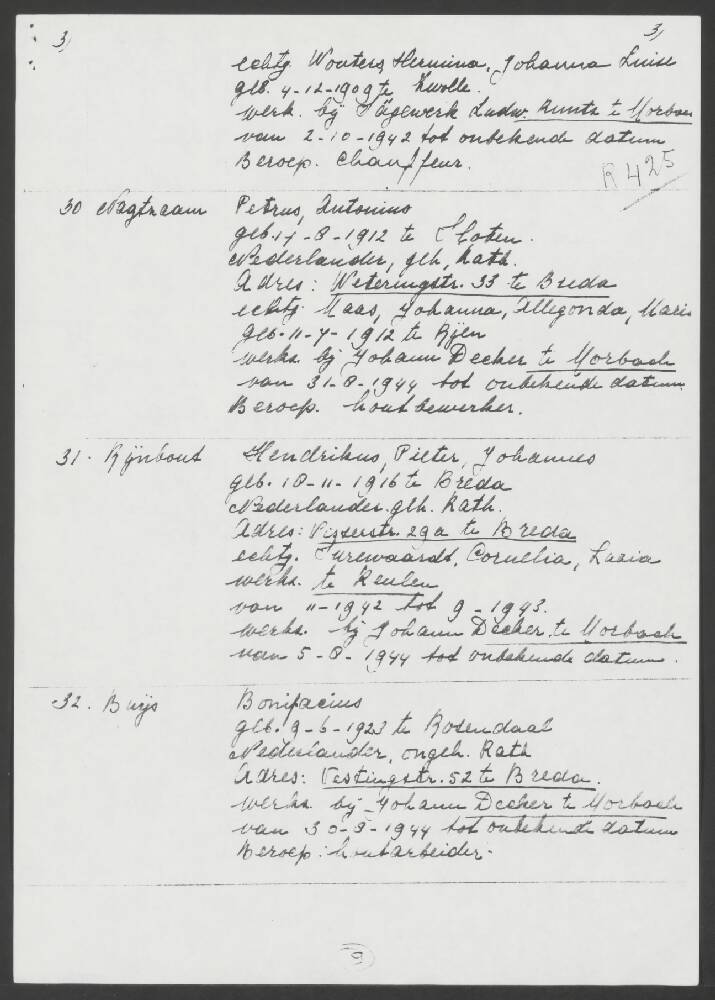 3)
3)
echtg. Wouters, Hermina, Johanna Luise
geb. 4-12-1909 te Zwolle.
werk. bij Sägewerk Ludw. Kuntz te Morbach
van 2-10-1942 tot onbekende datum
Beroep. Chauffeur.
R 425
30 Nagtzaam Petrus, Antonius
geb. 17-8-1912 te Sloten.
Nederlander, geh. Kath.
Adres: Weteringstr. 33 te Breda
echtg. Maas, Johanna, Allegonda, Maria
geb. 11-7-1912 te Rijen
werkz. bij Johann Decker te Morbach
van 31-8-1944 tot onbekende datum
Beroep. houtbewerker.
31. Rijnbout Hendrikus, Pieter, Johannes
geb. 18-11-1916 te Breda
Nederlander. geh. Kath.
Adres: Visserstr. 29a te Breda
echtg. Surewaardt, Cornelia, Luzia
werkz. te Keulen
van 11-1942 tot 9-1943.
werkz. bij Johann Decker te Morbach
van 5-8-1944 tot onbekende datum.
32. Buijs Bonifacius
geb. 9-6-1923 te Rosendaal
Nederlander, ongeh. Kath
Adres: Vestingstr. 52 te Breda.
werkz. bij Johann Decker te Morbach
van 30-8-1944 tot onbekende datum
Beroep: houtarbeider.
9